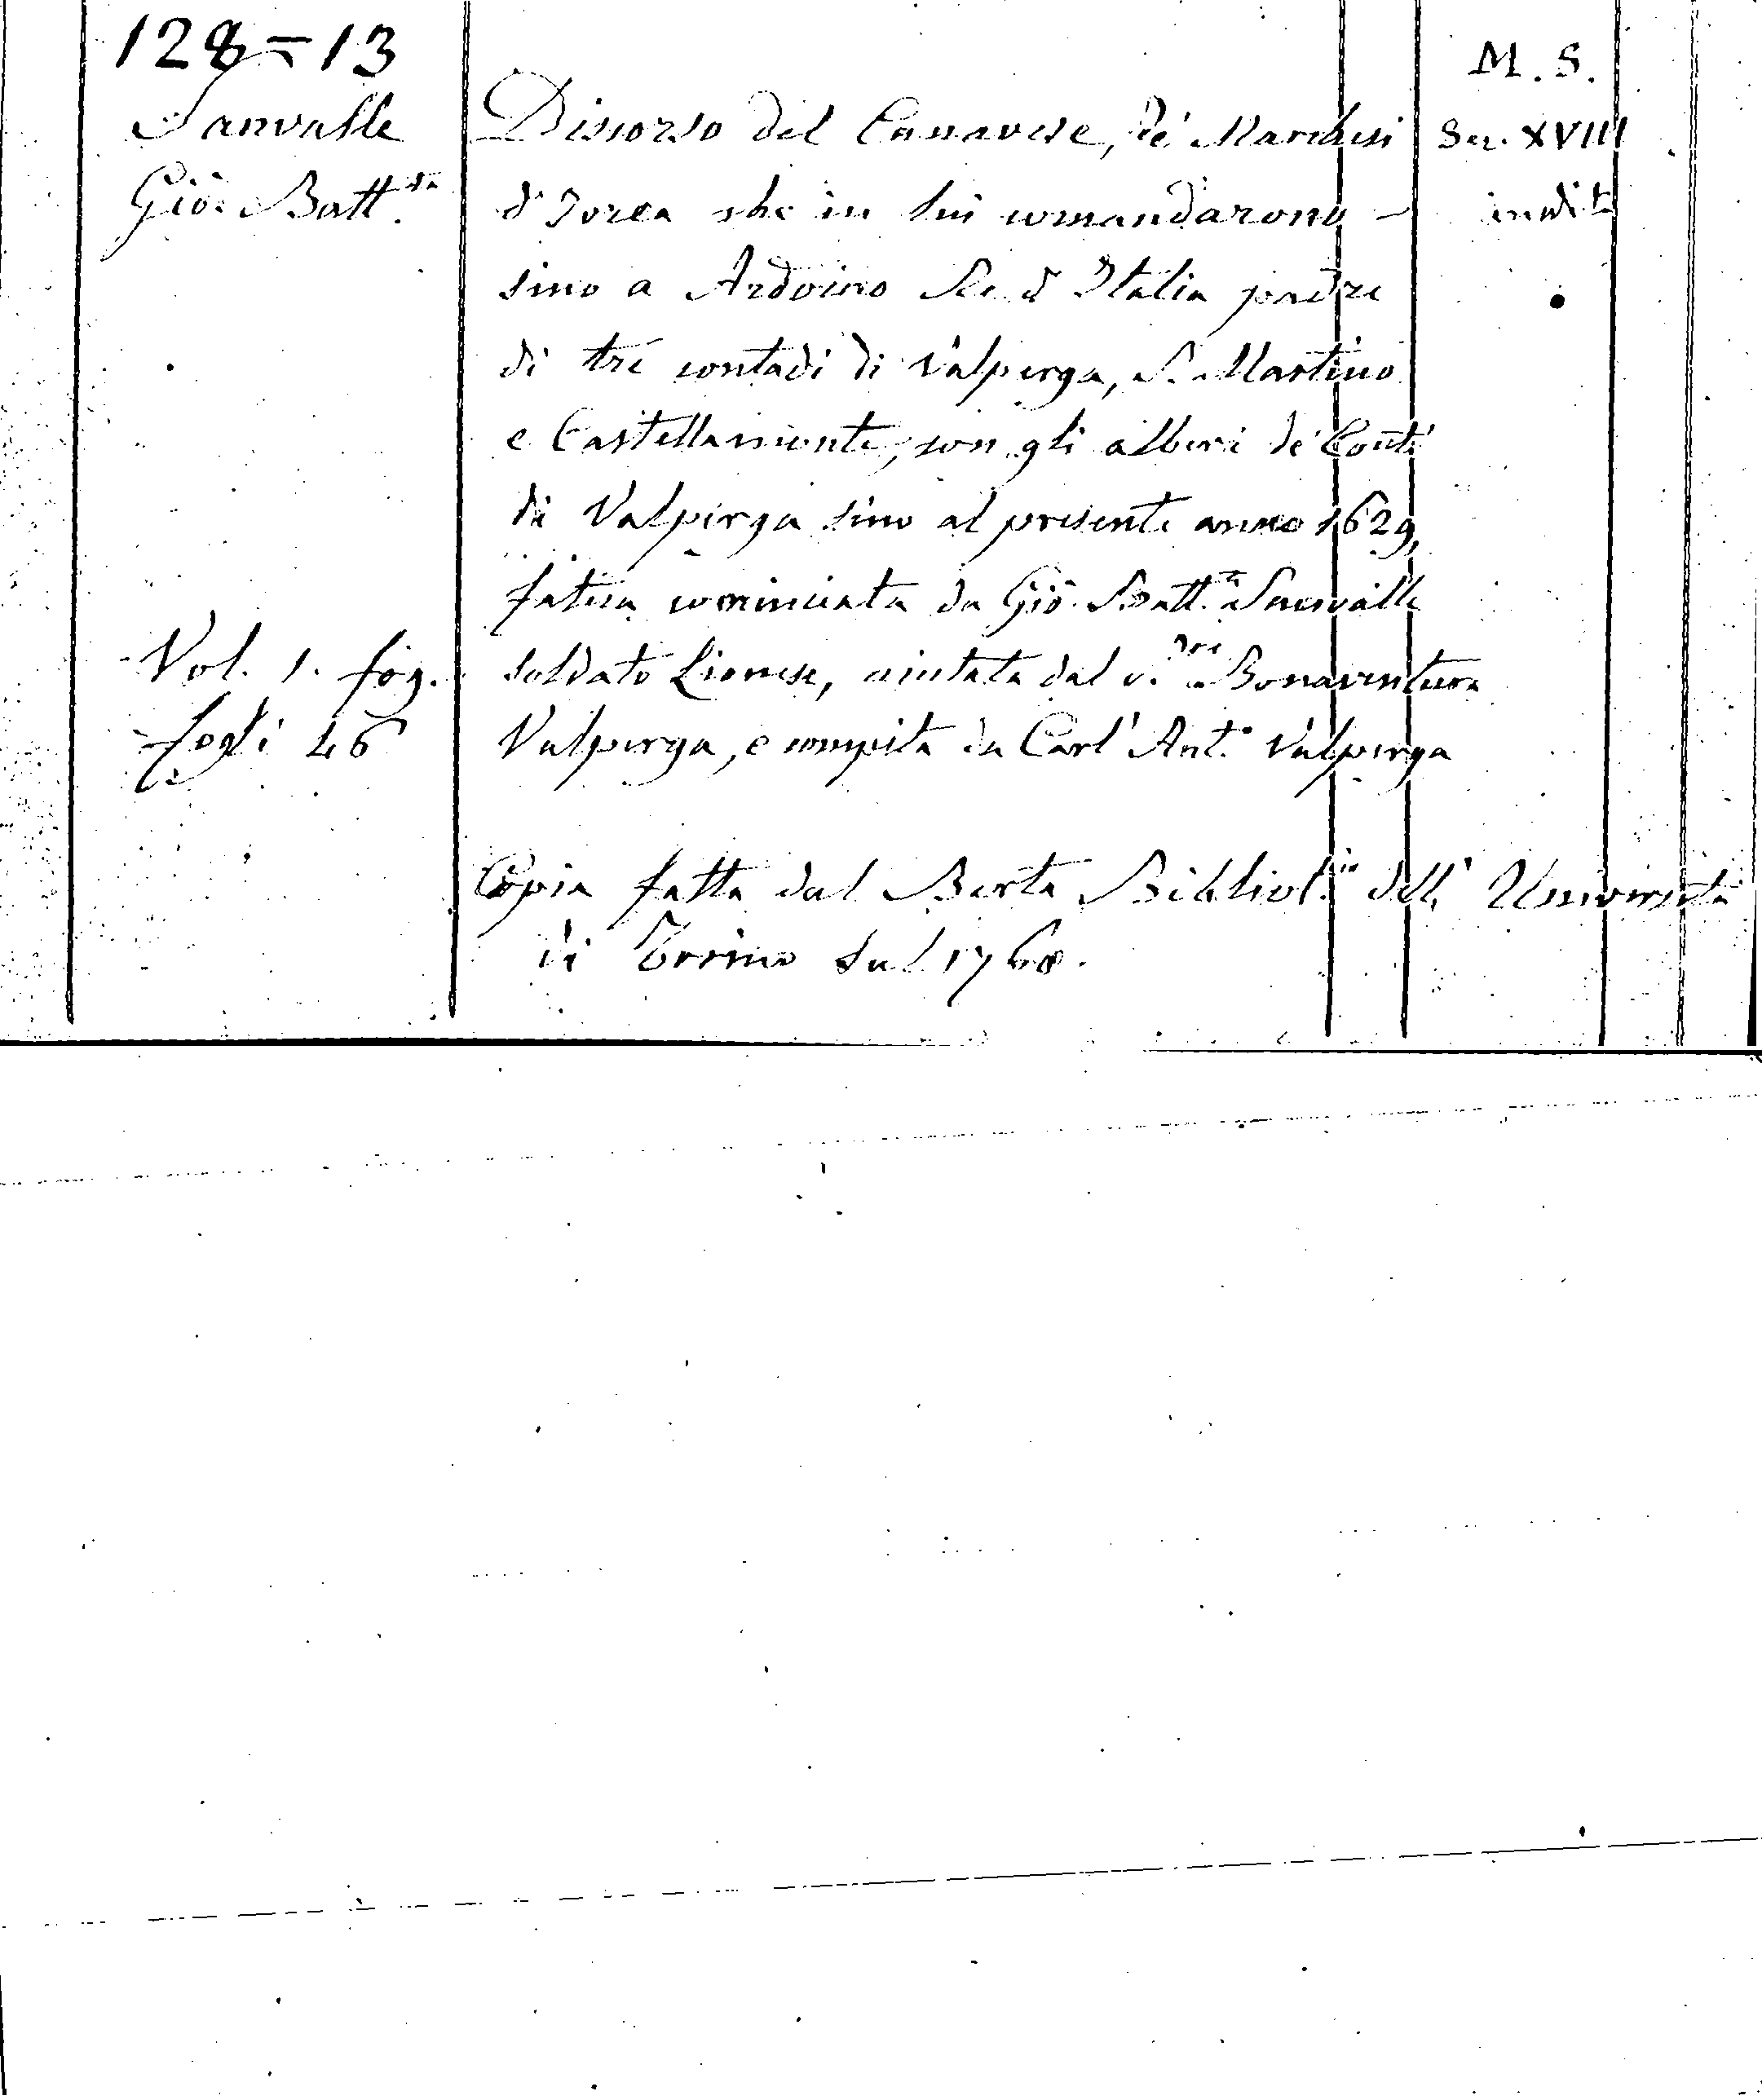 128=13
Sanvalle
Gio: Batt.sta
Vol. 1. fog.
fogli 46
Discorso del Canavese, de' Marchesi
d'Ivrea che in lui comandarono
sino a Ardoino Re d'Italia padre
di tre contadi di Valperga, S. Martino
e Castellamonte, con gli alberi de' Conti
di Valperga sino al presente anno 1629,
fatica cominciata da Gio. Batt.a Sanvalle
soldato Lionese, aiutata dal Bonaventura
Valperga, e compita da Carl'Ant.o Valperga
Copia fatta dal Berta Bibliot.io dell'Università
di Torino sul 1760.
M. S.
Sec. XVIII
inedito